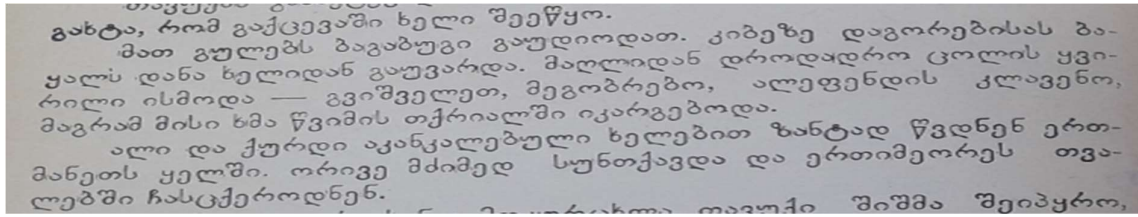 გახტა, რომ გაქცევაში ხელი შეეწყო.
მათ გულებს ბაგაბუგი გაუდიოდათ. კიბეზე დაგორებისას ბა-
ყალს დანა ხელიდან გაუვარდა. მაღლიდან დროდადრო ცოლის ყვი-
რილი ისმოდა — გვიშველეთ, მეგობრებო, ალეფენდის კლავენო,
მაგრამ მისი ხმა წვიმის თქრიალში იკარგებოდა.
ალი და ქურდი აკანკალებული ხელებით ზანტად წვდნენ ერთ-
მანეთს ყელში. ორივე მძიმედ სუნთქავდა და ერთიმეორეს თვა-
ლებში ჩასცქეროდნენ.
შიშმა შეიპყრო,